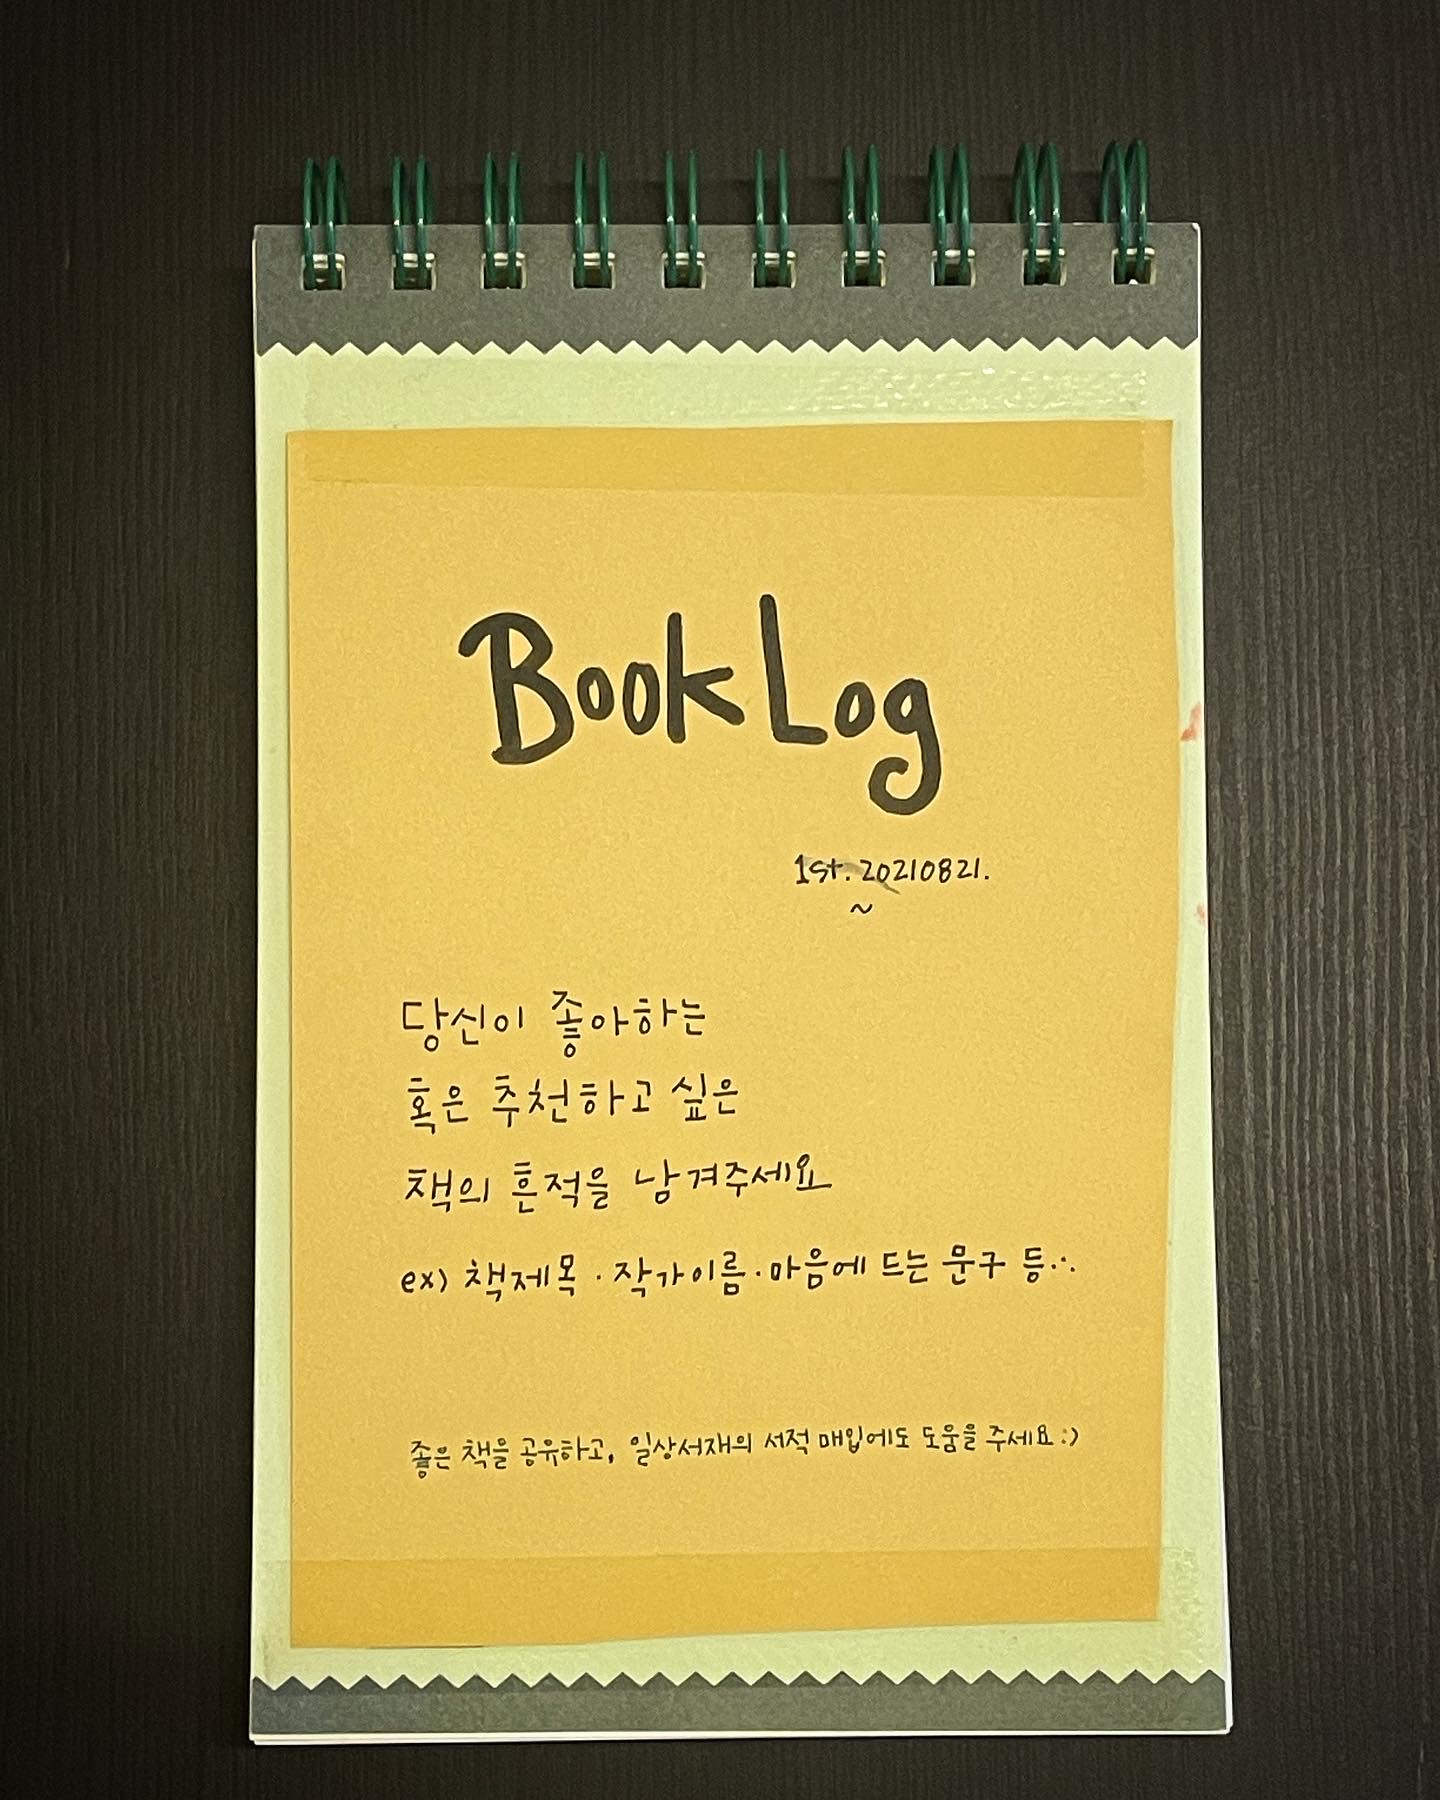 Book Log
1st. 20210821.
~
당신이 좋아하는
혹은 추천하고 싶은
책의 흔적을 남겨주세요
ex) 책제목 · 작가이름 · 마음에 드는 문구 등...
좋은 책을 공유하고, 일상서재의 서적 매입에도 도움을 주세요 :)